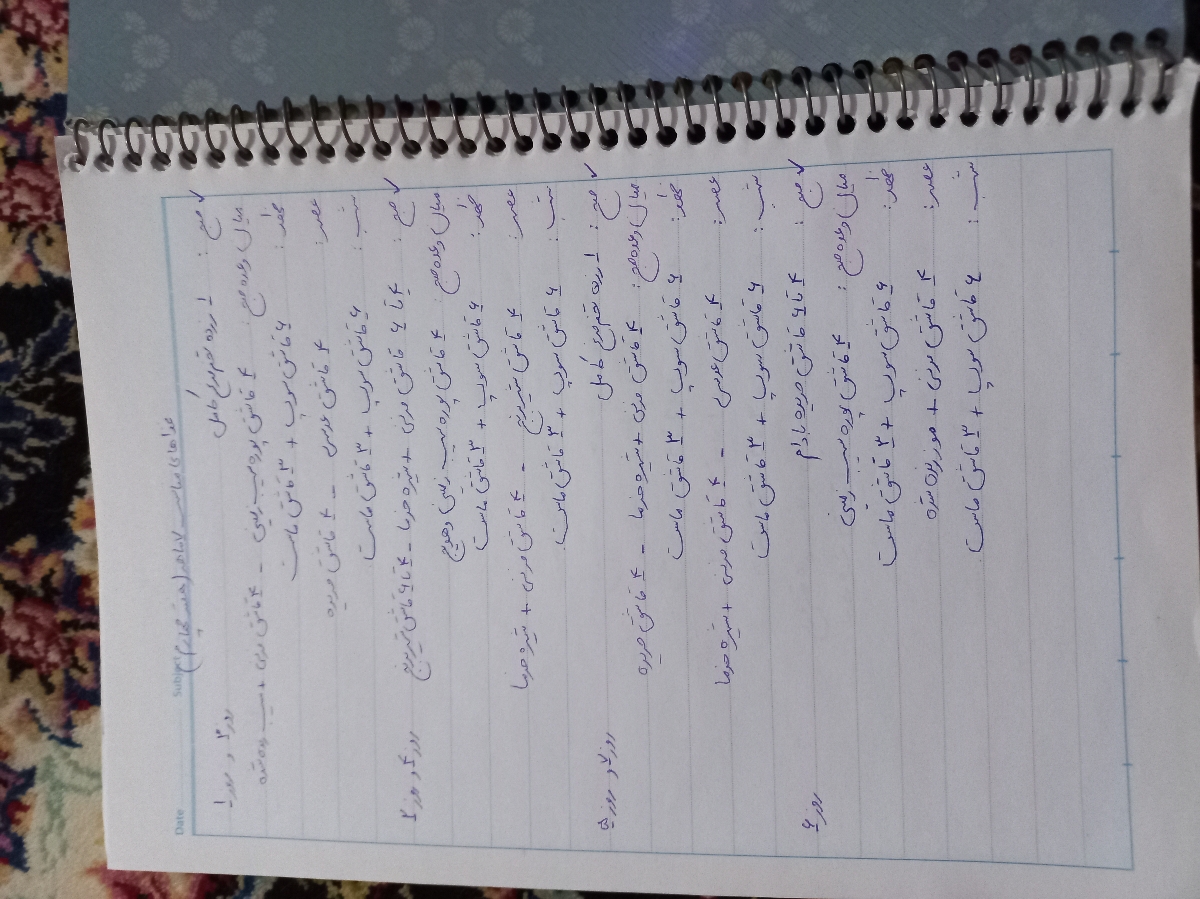 Subject: غذاهای مناسب ۷ ماهه (هفته چهارم)
Date
✓ صبح : ۱ زرده تخم مرغ کامل روز ۳ و روز ۱
میان وعده صبح : ۴ قاشق پوره سیب زمینی - ۴ قاشق فرنی + سیب رنده شده
ظهر : ۶ قاشق سوپ + ۳ قاشق ماست
عصر : ۴ قاشق فرنی - ۴ قاشق حریره
شب : ۶ قاشق سوپ + ۳ قاشق ماست
✓ صبح : ۴ تا ۶ قاشق فرنی + شیره خرما - ۴ تا ۶ قاشق شیربرنج روز ۴ و روز ۲
میان وعده صبح : ۴ قاشق پوره سیب زمینی و هویج
ظهر : ۶ قاشق سوپ + ۳ قاشق ماست
عصر : ۴ قاشق شیربرنج - ۴ قاشق فرنی + شیره خرما
شب : ۶ قاشق سوپ + ۳ قاشق ماست
✓ صبح : ۱ زرده تخم مرغ کامل روز ۷ و روز ۵
میان وعده صبح : ۴ قاشق فرنی + شیره خرما - ۴ قاشق حریره
ظهر : ۶ قاشق سوپ + ۳ قاشق ماست
عصر : ۴ قاشق - ۴ قاشق فرنی + شیره خرما
شب : ۶ قاشق سوپ + ۳ قاشق ماست
✓ صبح : ۴ تا ۶ قاشق حریره بادام روز ۶
میان وعده صبح : ۴ قاشق پوره سیب زمینی
ظهر : ۶ قاشق سوپ + ۳ قاشق ماست
عصر : ۴ قاشق فرنی + موز رنده شده
شب : ۶ قاشق سوپ + ۳ قاشق ماست